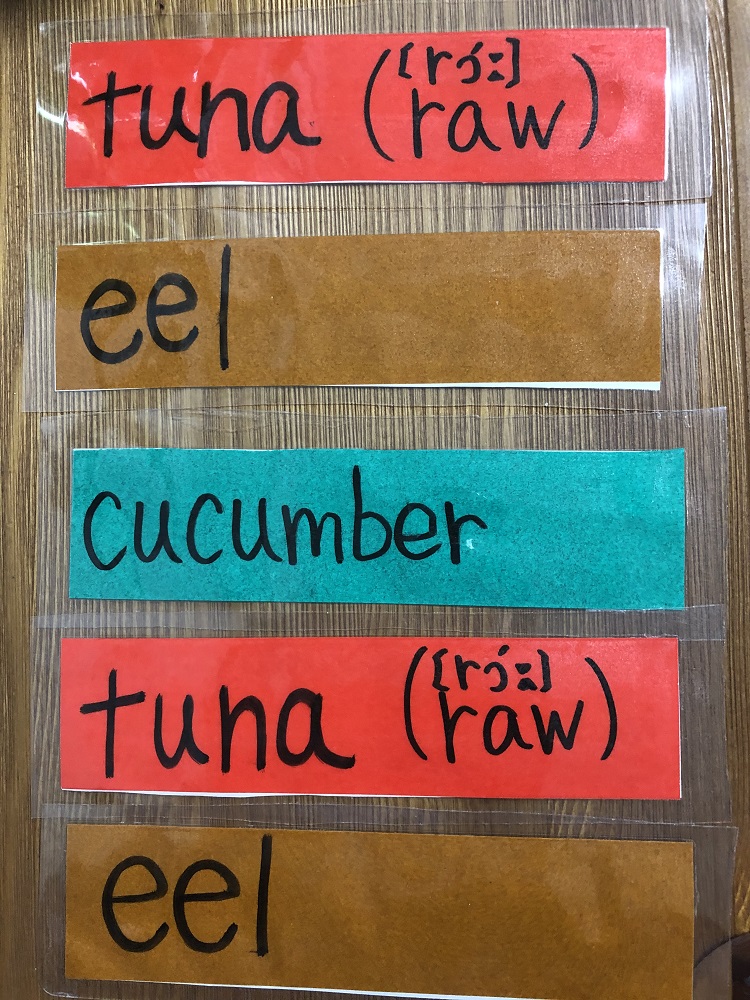 [rɔ́ː]
tuna (raw)
eel
cucumber
[rɔ́ː]
tuna (raw)
eel